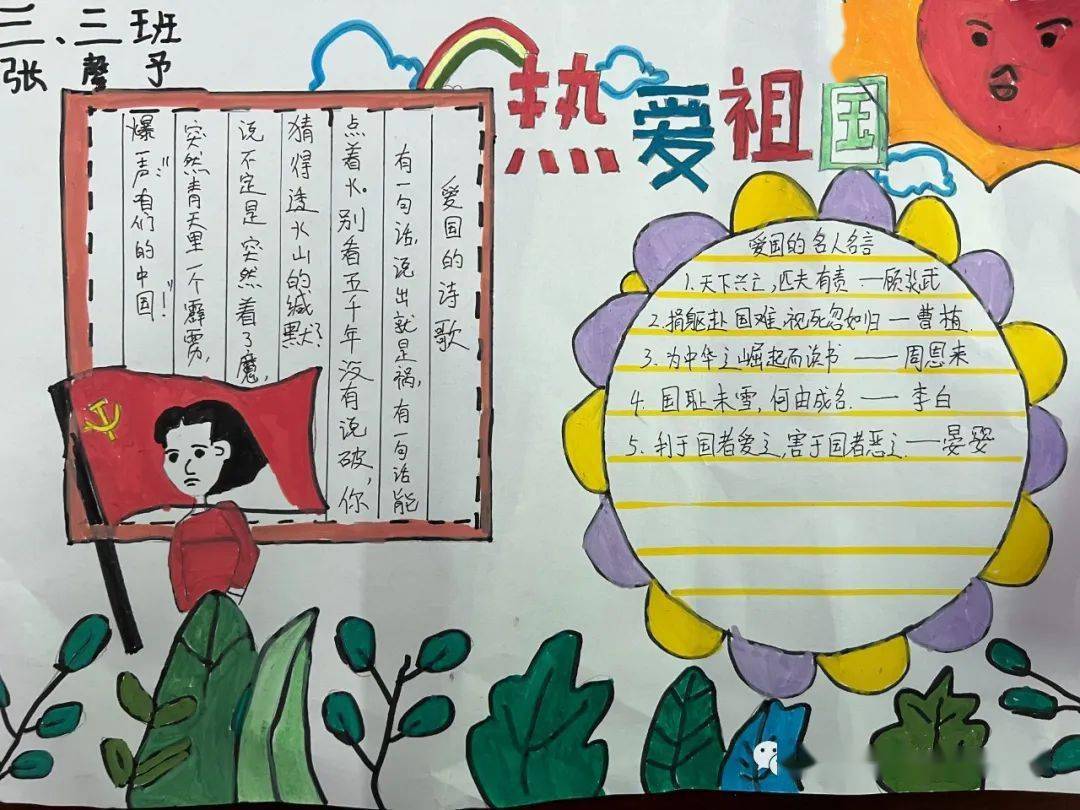 三、三班
张馨予
热爱祖国
爱国的诗歌
有一句话,说出就是祸,有一句话能
点着火。别看五千年没有说破,你
猜得透火山的缄默?
说不定是突然着了魔,
突然青天里一个霹雳,
爆一声:“有们的中国”!
爱国的名人名言
1.天下兴亡,匹夫有责——顾炎武
2.捐躯赴国难,视死忽如归—曹植
3.为中华之崛起而读书——周恩来
4.国耻未雪,何由成名.——李白
5.利于国者爱之,害于国者恶之——晏婴